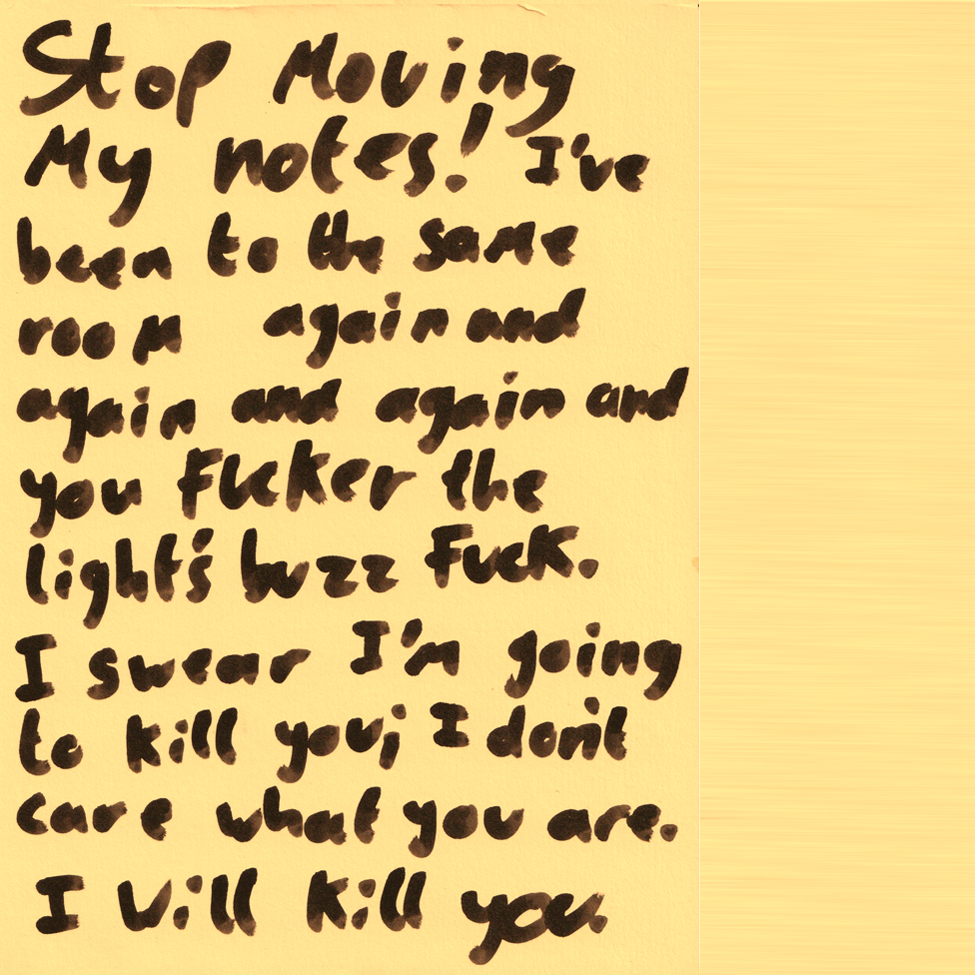 Stop Moving
My notes! I've
been to the same
room again and
again and again and
you Fucker the
light's buzz Fuck.
I swear I'm going
to kill you; I don't
care what you are.
I Will Kill you.